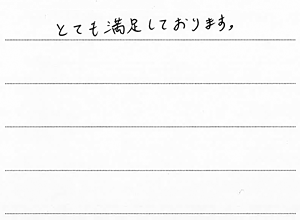 とても満足しております。